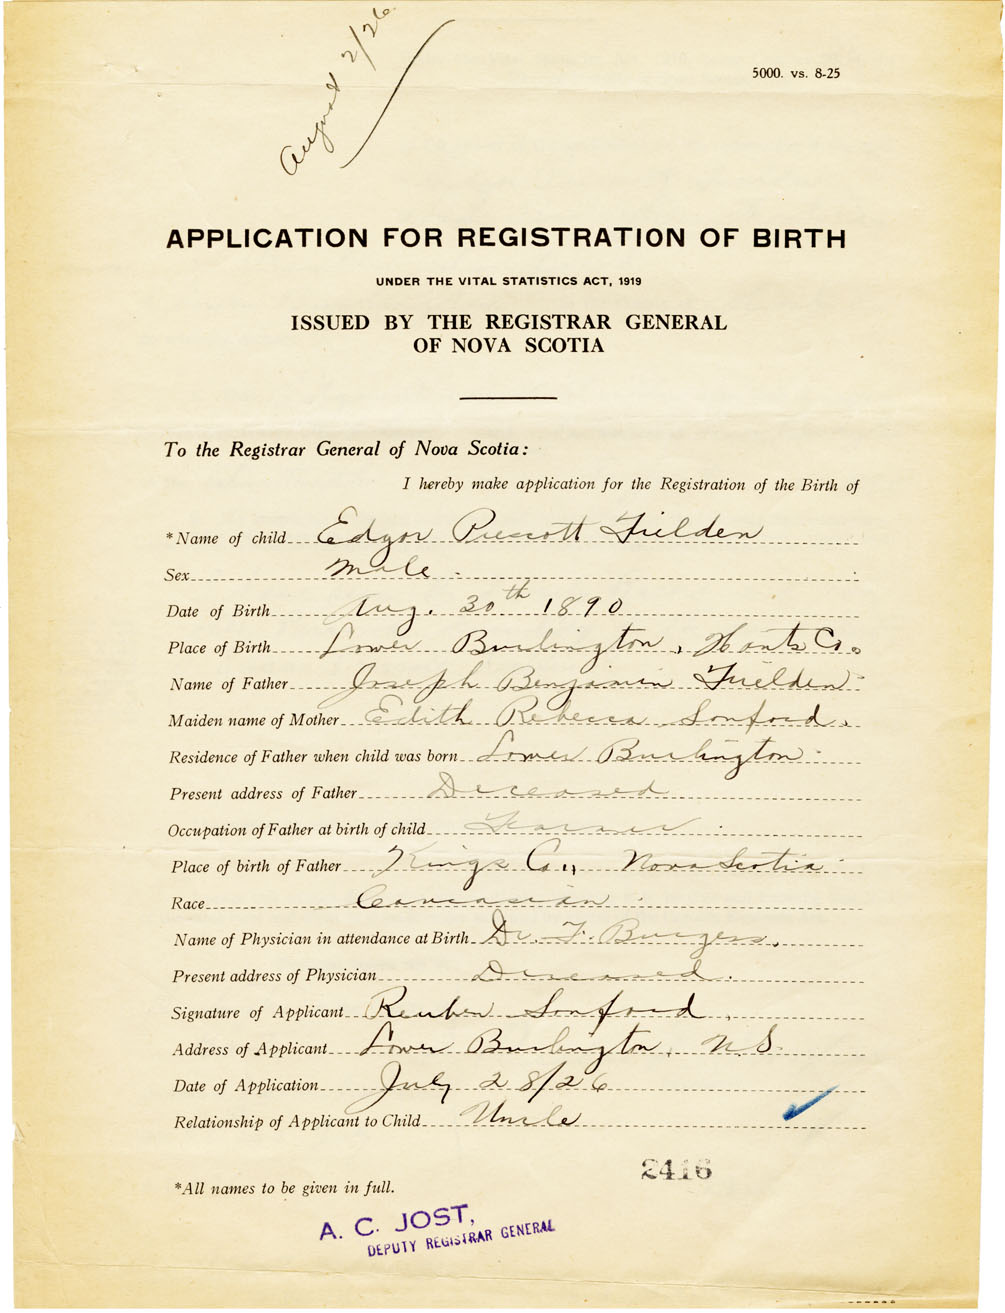 August 2/26
5000. vs. 8-25
APPLICATION FOR REGISTRATION OF BIRTH
UNDER THE VITAL STATISTICS ACT, 1919
ISSUED BY THE REGISTRAR GENERAL
OF NOVA SCOTIA
To the Registrar General of Nova Scotia:
I hereby make application for the Registration of the Birth of
*Name of child Edgar Prescott Fielden
Sex Male
Date of Birth Aug. 30th 1890
Place of Birth Lower Burlington, Hants Co.
Name of Father Joseph Benjamin Fielden
Maiden name of Mother Edith Rebecca Sanford.
Residence of Father when child was born Lower Burlington
Present address of Father Deceased
Occupation of Father at birth of child Farmer
Place of birth of Father Kings Co., Nova Scotia
Race Caucasian
Name of Physician in attendance at Birth Dr. F. Burgess.
Present address of Physician Deceased.
Signature of Applicant Reuben Sanford.
Address of Applicant Lower Burlington, N.S.
Date of Application July 28/26
Relationship of Applicant to Child Uncle
2416
*All names to be given in full.
A. C. JOST,
DEPUTY REGISTRAR GENERAL